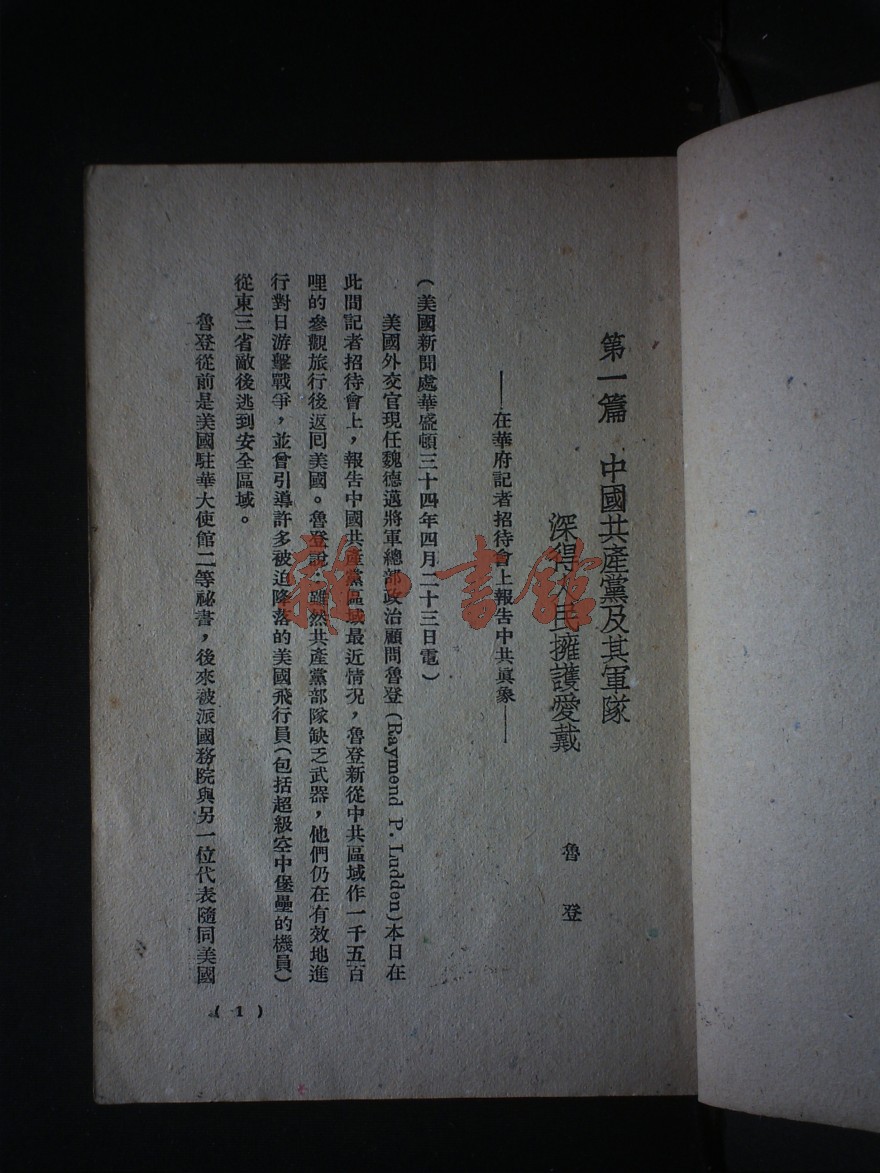 第一篇 中國共產黨及其軍隊
深得人民擁護愛戴
魯登
——在華府記者招待會上報告中共眞象——
(美國新聞處華盛頓三十四年四月二十三日電)
美國外交官現任魏德邁將軍總部政治顧問魯登(Raymend P. Ludden)本日在
此間記者招待會上,報告中國共產黨區域最近情況,魯登新從中共區域作一千五百
哩的參觀旅行後返囘美國。魯登說:雖然共產黨部隊缺乏武器,他們仍在有效地進
行對日游擊戰爭,並曾引導許多被迫降落的美國飛行員(包括超級空中堡壘的機員)
從東三省敵後逃到安全區域。
魯登從前是美國駐華大使館二等祕書,後來被派國務院與另一位代表隨同美國
( 1 )
雜·書館